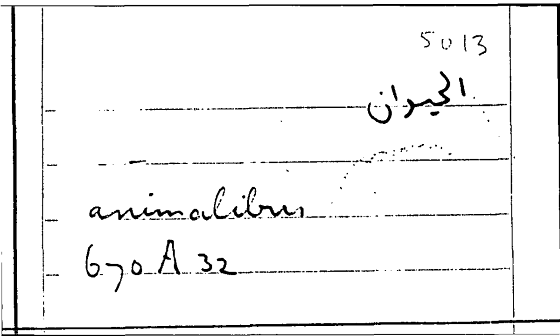 5013
الحيوان
animalibus
670 A 32